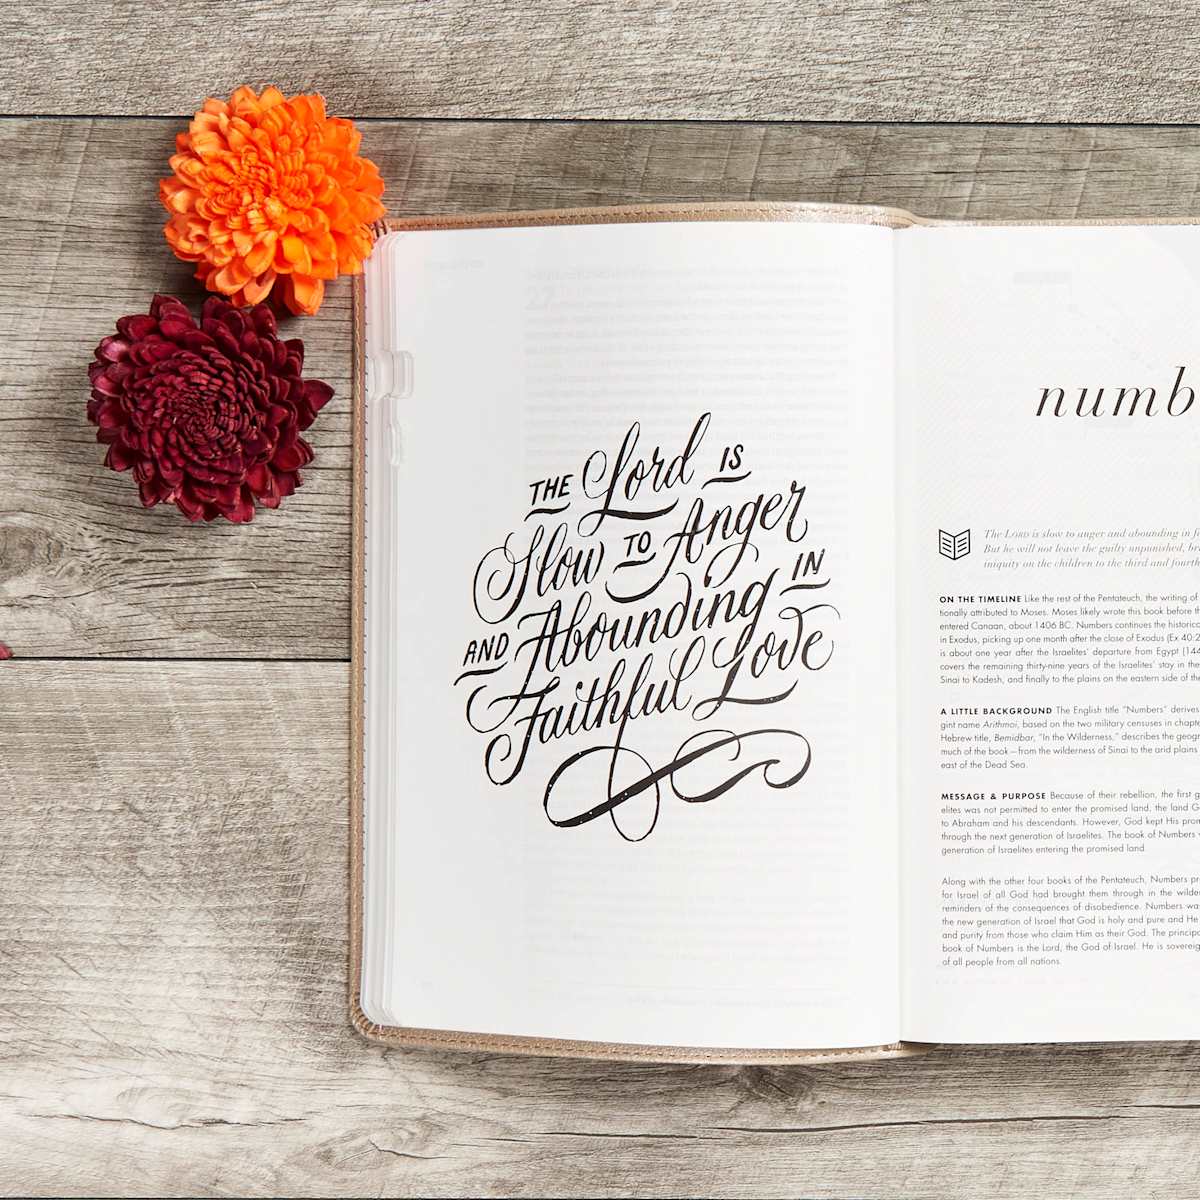 THE Lord IS
Slow TO Anger
AND Abounding IN
Faithful Love
numb
The LORD is slow to anger and abounding in
But he will not leave the guilty unpunished,
iniquity on the children to the third and fourth
ON THE TIMELINE Like the rest of the Pentateuch, the writing of
tionally attributed to Moses. Moses likely wrote this book before
entered Canaan, about 1406 BC. Numbers continues the historic
in Exodus, picking up one month after the close of Exodus (Ex 40:2
is about one year after the Israelites' departure from Egypt (144
covers the remaining thirty-nine years of the Israelites' stay in the
Sinai to Kadesh, and finally to the plains on the eastern side of the
A LITTLE BACKGROUND The English title "Numbers" derives
gint name Arithmoi, based on the two military censuses in chapte
Hebrew title, Bemidbar, "In the Wilderness," describes the geogr
much of the book—from the wilderness of Sinai to the arid plains
east of the Dead Sea.
MESSAGE & PURPOSE Because of their rebellion, the first g
elites was not permitted to enter the promised land, the land G
to Abraham and his descendants. However, God kept His prom
through the next generation of Israelites. The book of Numbers
generation of Israelites entering the promised land.
Along with the other four books of the Pentateuch, Numbers pr
for Israel of all God had brought them through in the wilde
reminders of the consequences of disobedience. Numbers was
the new generation of Israel that God is holy and pure and He
and purity from those who claim Him as their God. The principa
book of Numbers is the Lord, the God of Israel. He is sovereig
of all people from all nations.